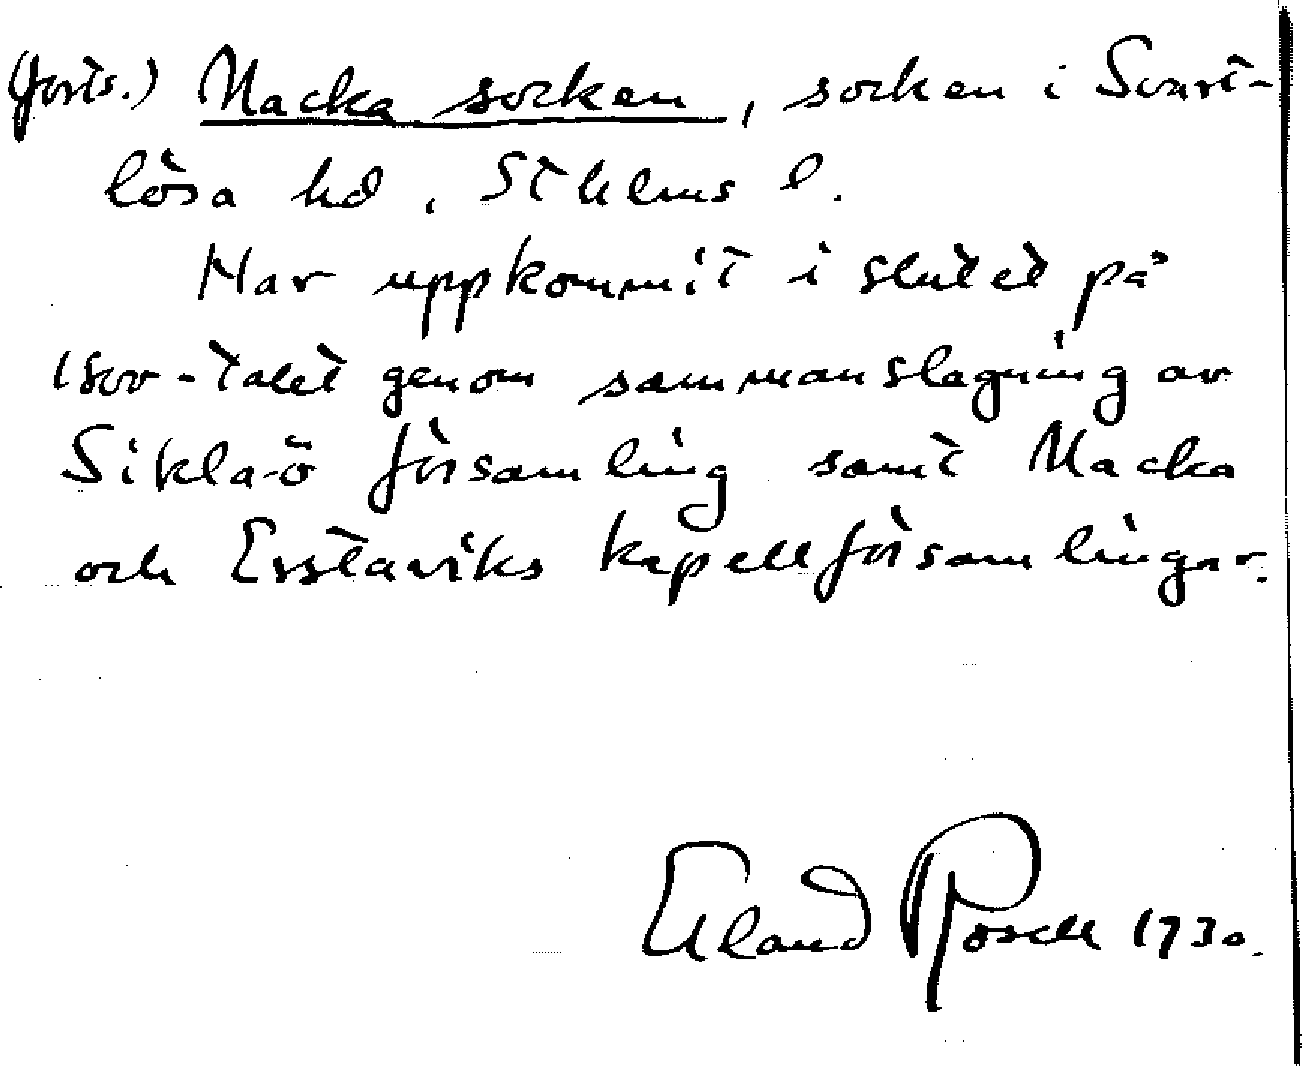 (forts.) Nacka socken, socken i Svart-
lösa hd, Sthlms l.
Har uppkommit i slutet på
1800-talet genom sammanslagning av
Sikla-ö församling samt Nacka
och Erstaviks kapellförsamlingar.
Erland Rosell 1930.